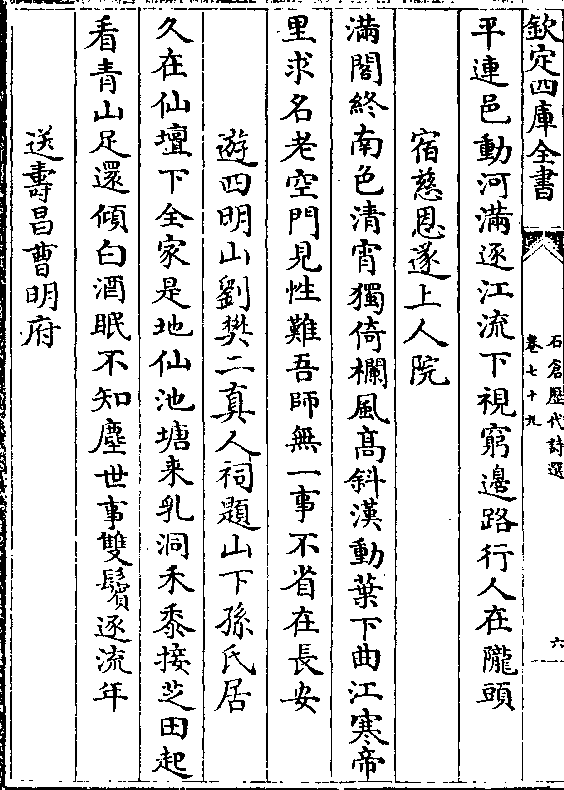 欽定四庫全書
石倉歷代詩選
卷七十九
六
平連邑動河滿逐江流下視窮邊路行人在隴頭
宿慈恩遂上人院
滿閣終南色清宵獨倚欄風髙斜漢動葉下曲江寒帝
里求名老空門見性難吾師無一事不省在長安
遊四明山劉樊二真人祠題山下孫氏居
久在仙壇下全家是地仙池塘来乳洞禾黍接芝田起
看青山足還傾白酒眠不知塵世事雙鬢逐流年
送壽昌曹明府